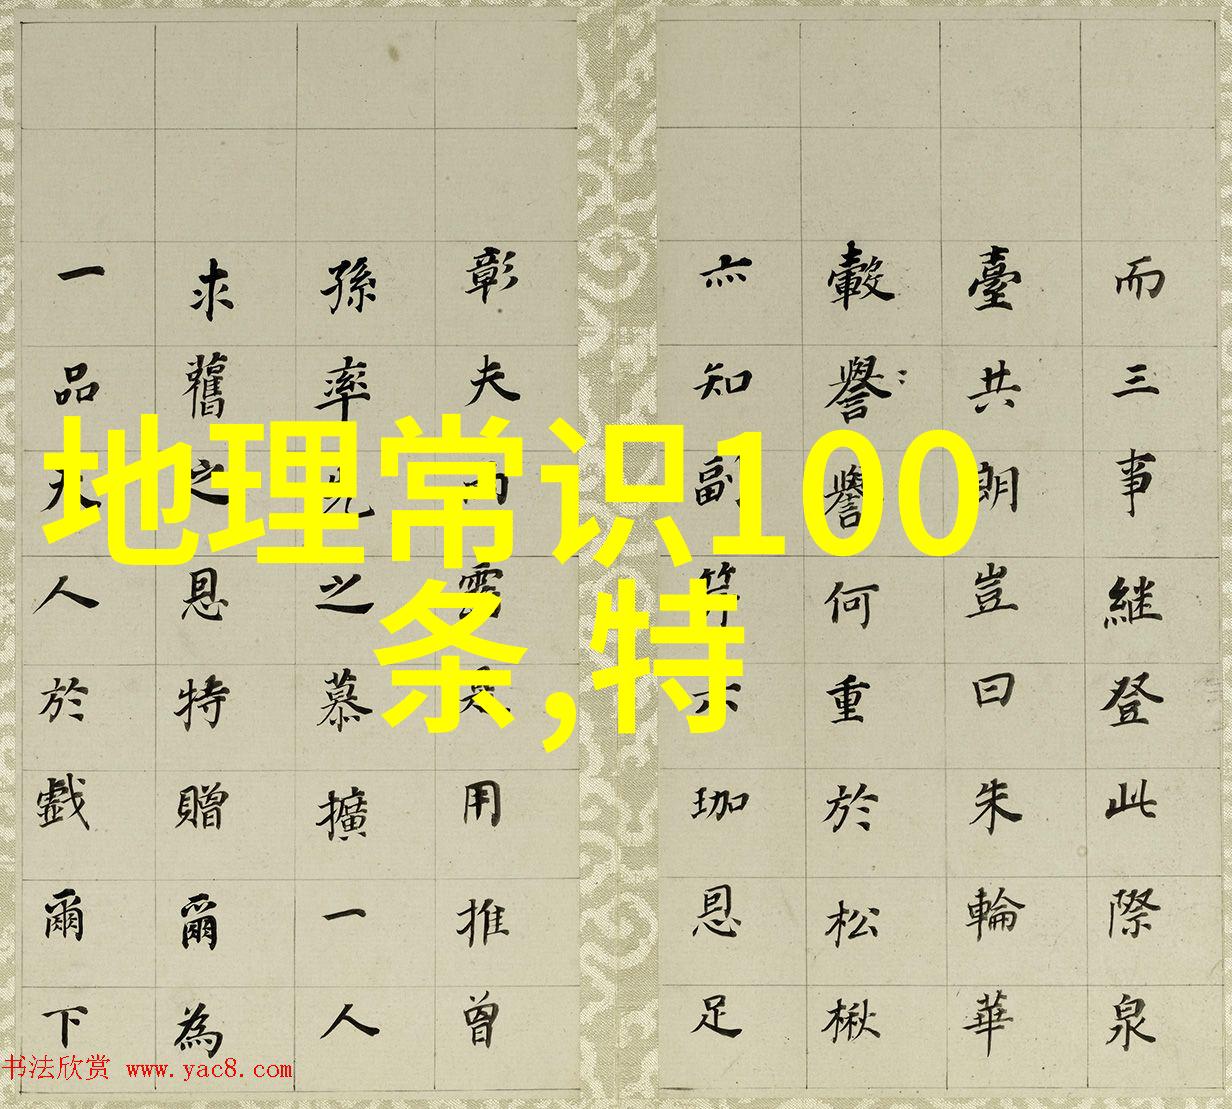 地理常识100
条,特
而三事継登此際泉
臺共朗豈曰朱輪華
轂譽譽何重於松楸
亦知副笄六珈恩足
彰夫雨露是用推曾
孫率先之慕擴一人
求舊之恩特贈爾為
一品夫人於戲爾下
书法欣赏 www.yac8.com